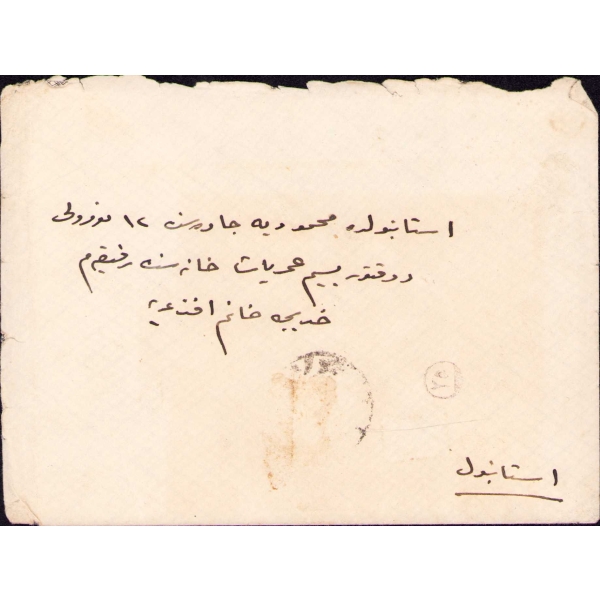 استانبولده محموديه جاده‌سنده ١٢ نومرولى
دوقتور بسيم عمر پاشا خانه‌سنده رفيقه‌م
خديجه خانم افندى‌يه
٢٥
استانبول